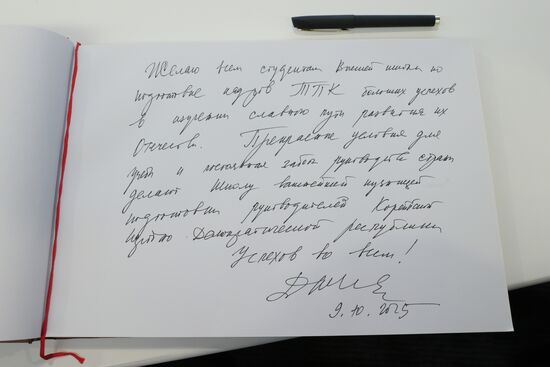 Желаю всем студентам Высшей школы по
подготовке кадров ТПК больших успехов
в изучении славного пути развития их
Отечества. Прекрасные условия для
учёбы и постоянная забота руководства страны
делают Школу важнейшей кузницей
подготовки руководителей Корейской
Народно-Демократической республики
Успехов во всем!
9.10.2025